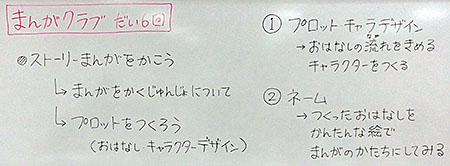 まんがクラブ だい6回
◎ストーリーまんがをかこう
↳まんがをかくじゅんじょについて
↳プロットをつくろう
(おはなし・キャラクターデザイン)
① プロット・キャラデザイン
→おはなしの流れをきめる
なが
キャラクターをつくる
② ネーム
→つくったおはなしを
かんたんな絵で
まんがのかたちにしてみる